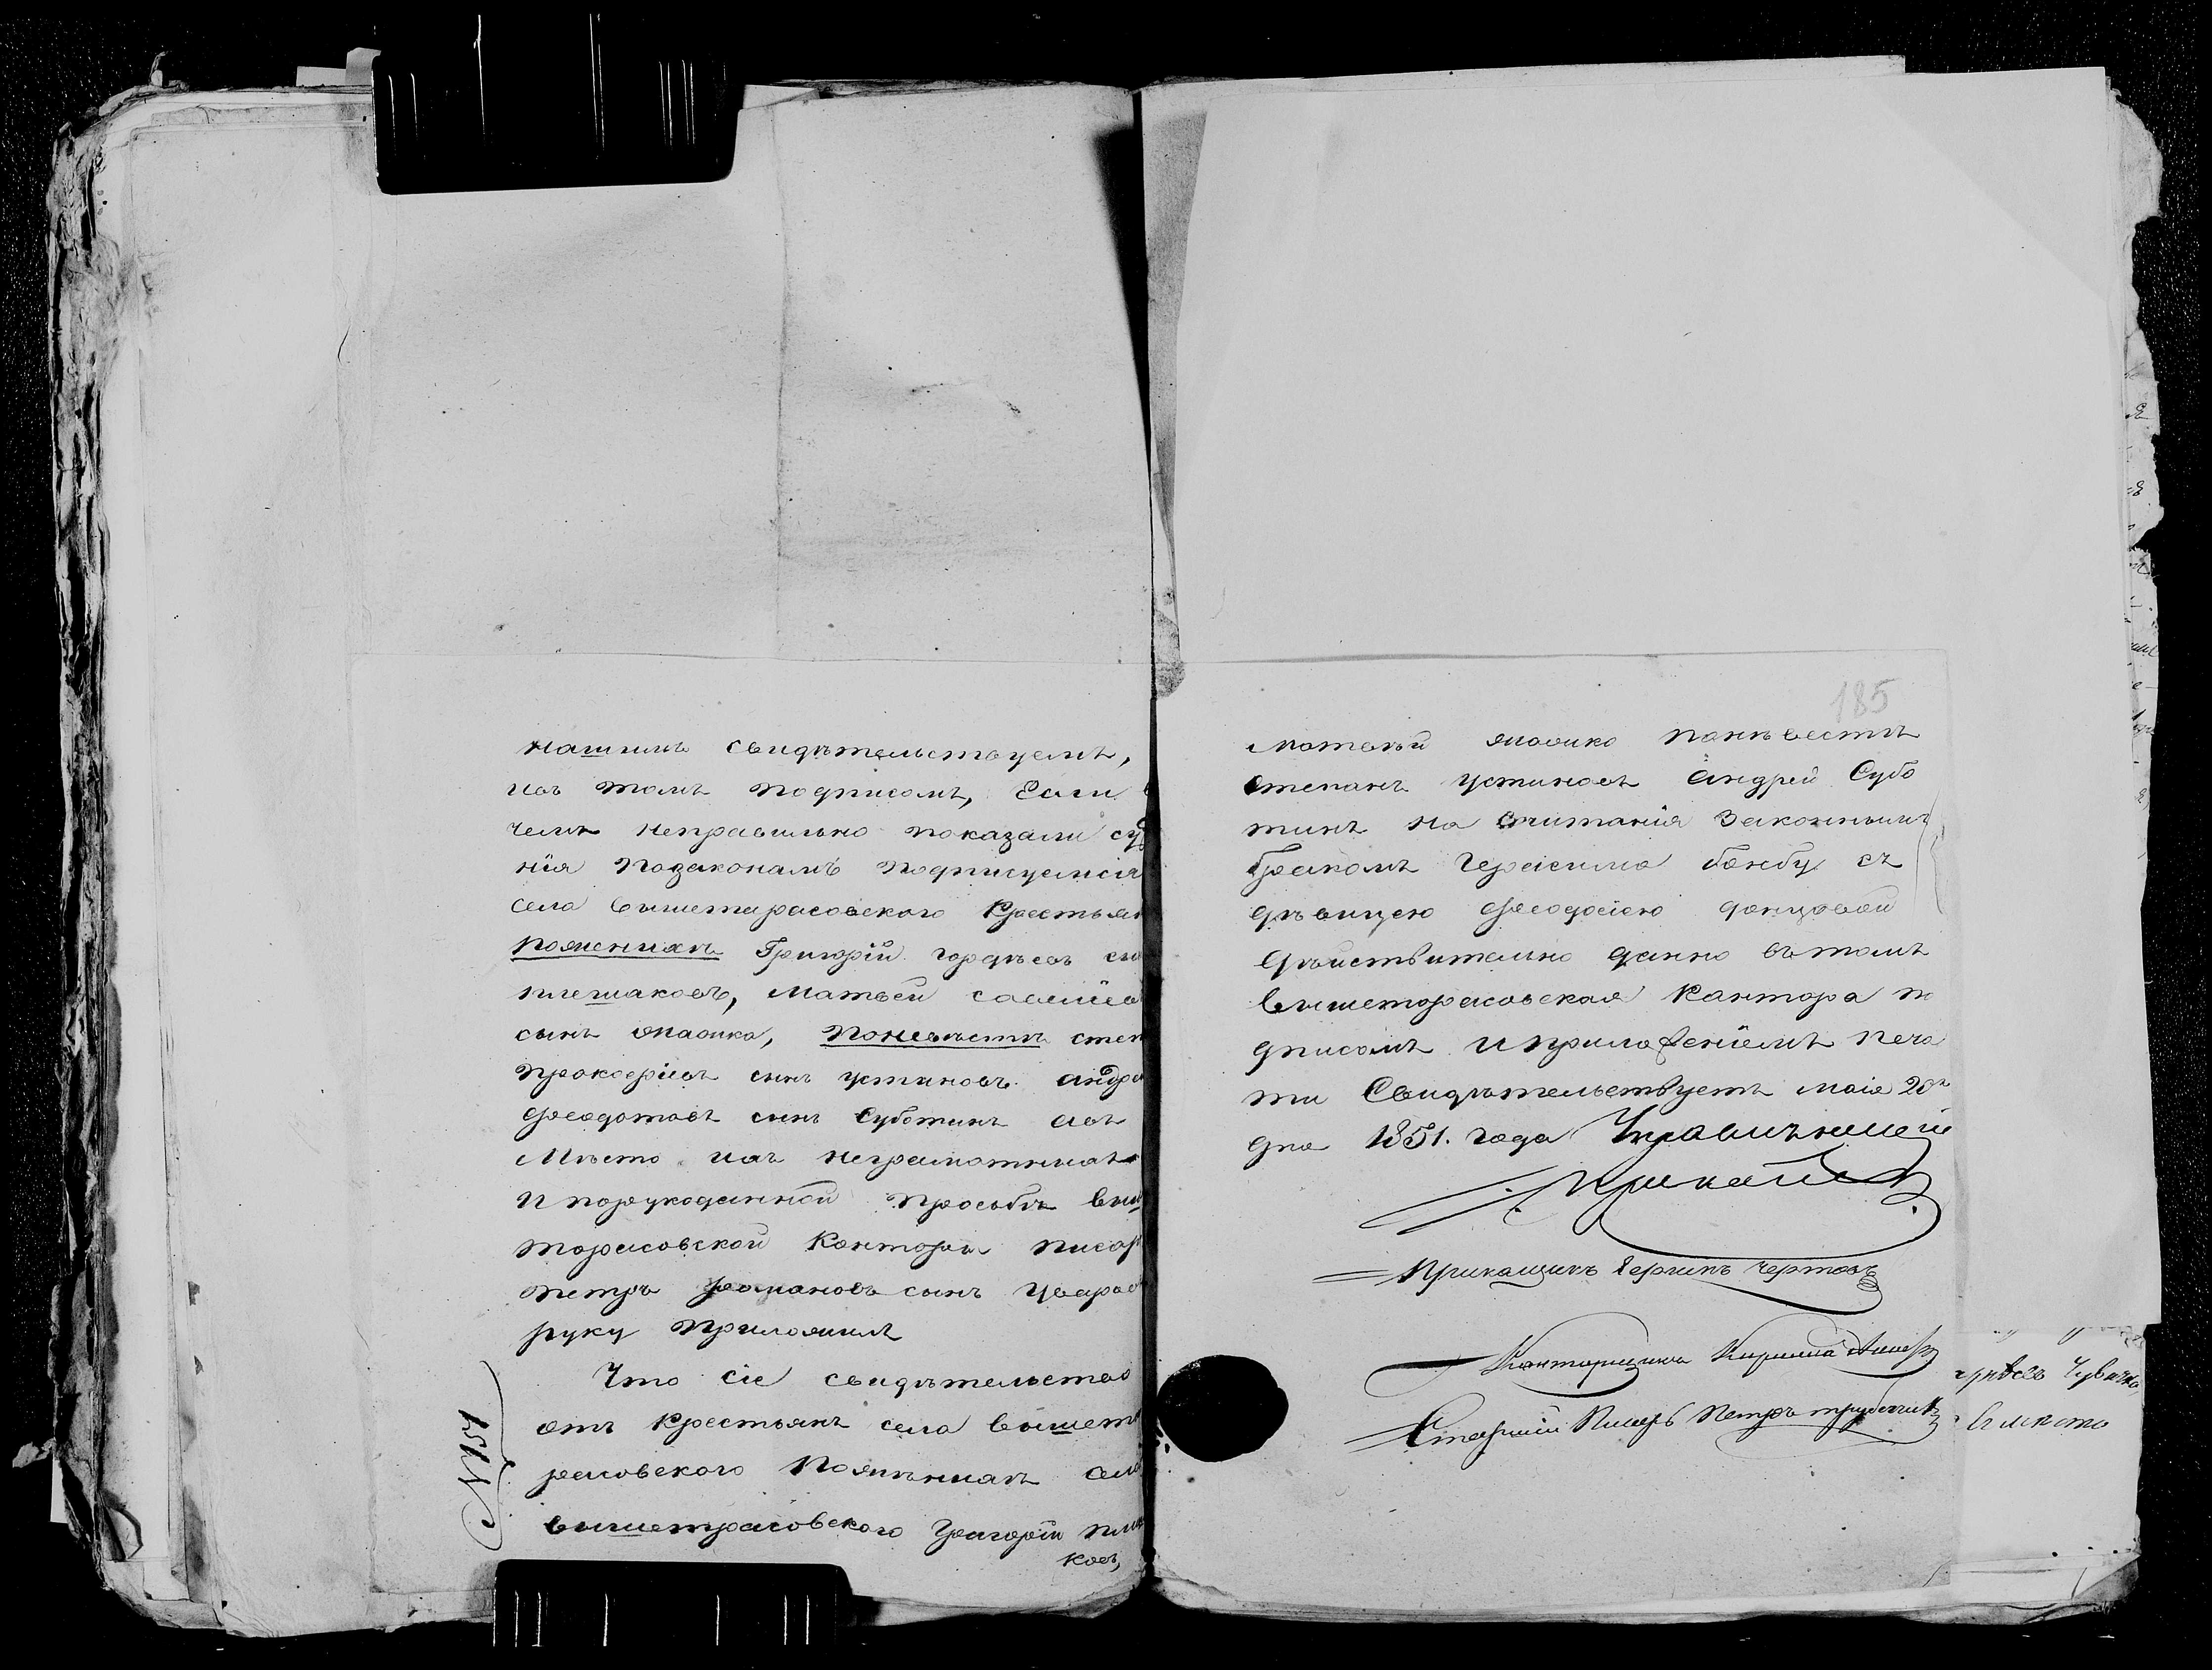 нашимъ свидѣтельствуемъ,
ивъ томъ подписомъ, Если
чемъ неправильно показали су
нія позаконамъ подписуемся
села вышетарасовского Крестьян
Поженихѣ Григорій гордѣевъ сы
плешаковъ, Матвей савѣльев
сынъ япаоико, Поневѣстѣ степ
прокоѳріевъ сынъ устиновъ андре
ѳеодотовъ сынъ Суботинъ авъ
Мѣсто ихъ неграмотныхъ
и порукоданной просьбѣ выш
тарасовской Конторы писарь
петръ романовъ сынъ
руку приложилъ
Что сіе свидѣтельство
отъ Крестьянъ села вышета
расовского Поженихѣ села
вышетрасовского Григорій пле
ковъ,
№ 157
185
Матвѣй Поневѣстѣ
степанъ устиновъ андрей Субо
тинъ на считанія Законнымъ
бракомъ Герасима бонбу съ
дѣвицею ѳеодосіею донцовой
дѣйствительно данно въ томъ
вышетарасовская Кантора по
дписомъ и приложеніемъ печа
ти Свидѣтельствуетъ маія 20го
дня 1851. года Управляющій
Прикащикъ Чертовъ
Канторщикъ Кирилла
Старшій Писарь Петръ трубчик
вмѣсто